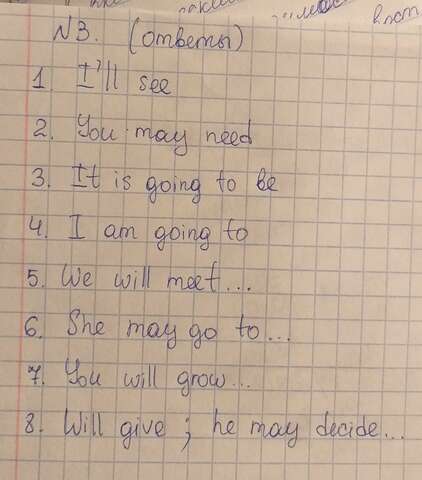 N3. (ответы)
1. I'll see
2. You may need
3. It is going to be
4. I am going to
5. We will meet...
6. She may go to...
7. You will grow...
8. Will give; he may decide...